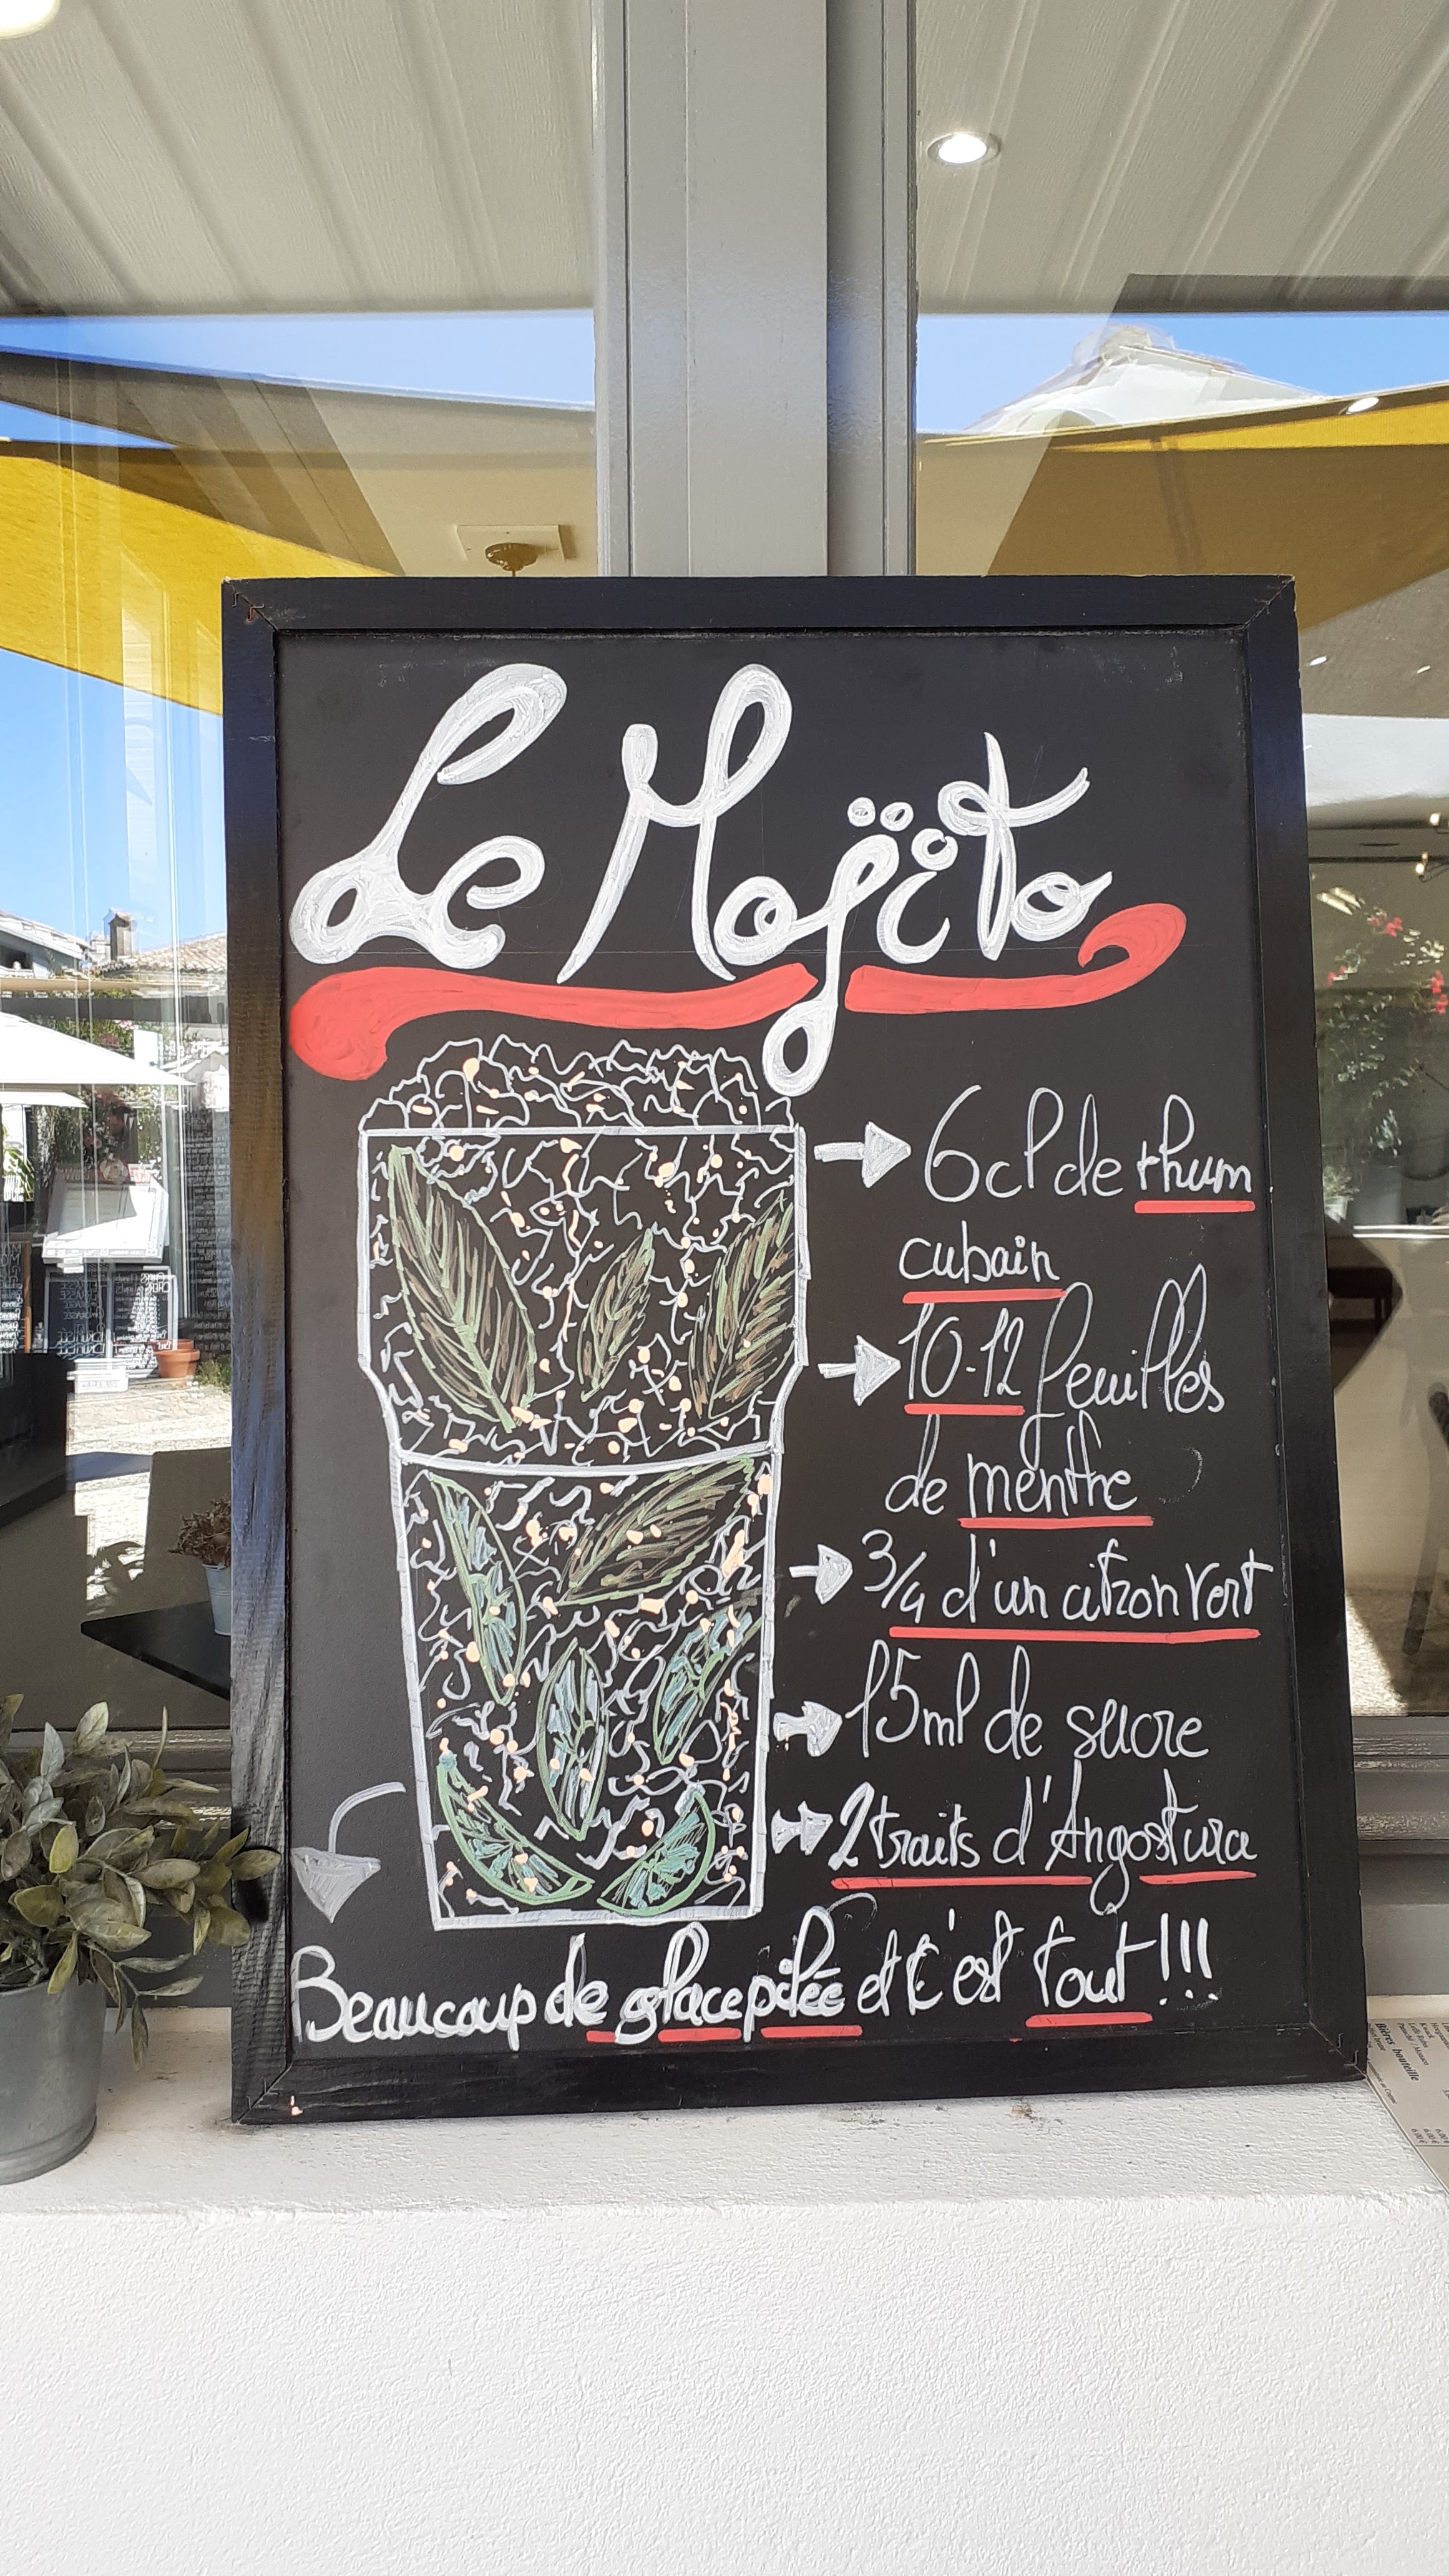 Le Mojito
6cl de rhum
cubain
10-12 feuilles
de menthe
3/4 d'un citron vert
15ml de sucre
2 traits d'Angostura
Beaucoup de glace pilée et c'est tout !!!
Bières bouteille